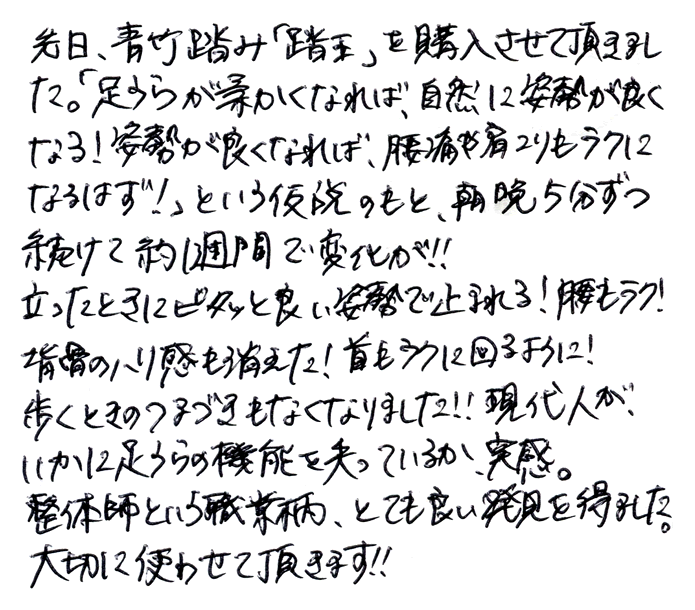 先日、青竹踏み「踏王」を購入させて頂きまし
た。「足うらが柔かくなれば、自然に姿勢が良く
なる！姿勢が良くなれば、腰痛や肩コリもラクに
なるはず！」という仮説のもと、朝晩5分ずつ
続けて約1週間で変化が!!
立ったときにピタッと良い姿勢で止まれる！腰もラク！
背骨のハリ感も消えた！首もラクに回るように！
歩くときのつまづきもなくなりました!!現代人が、
いかに足うらの機能を失っているか、実感。
整体師という職業柄、とても良い発見を得ました。
大切に使わせて頂きます!!